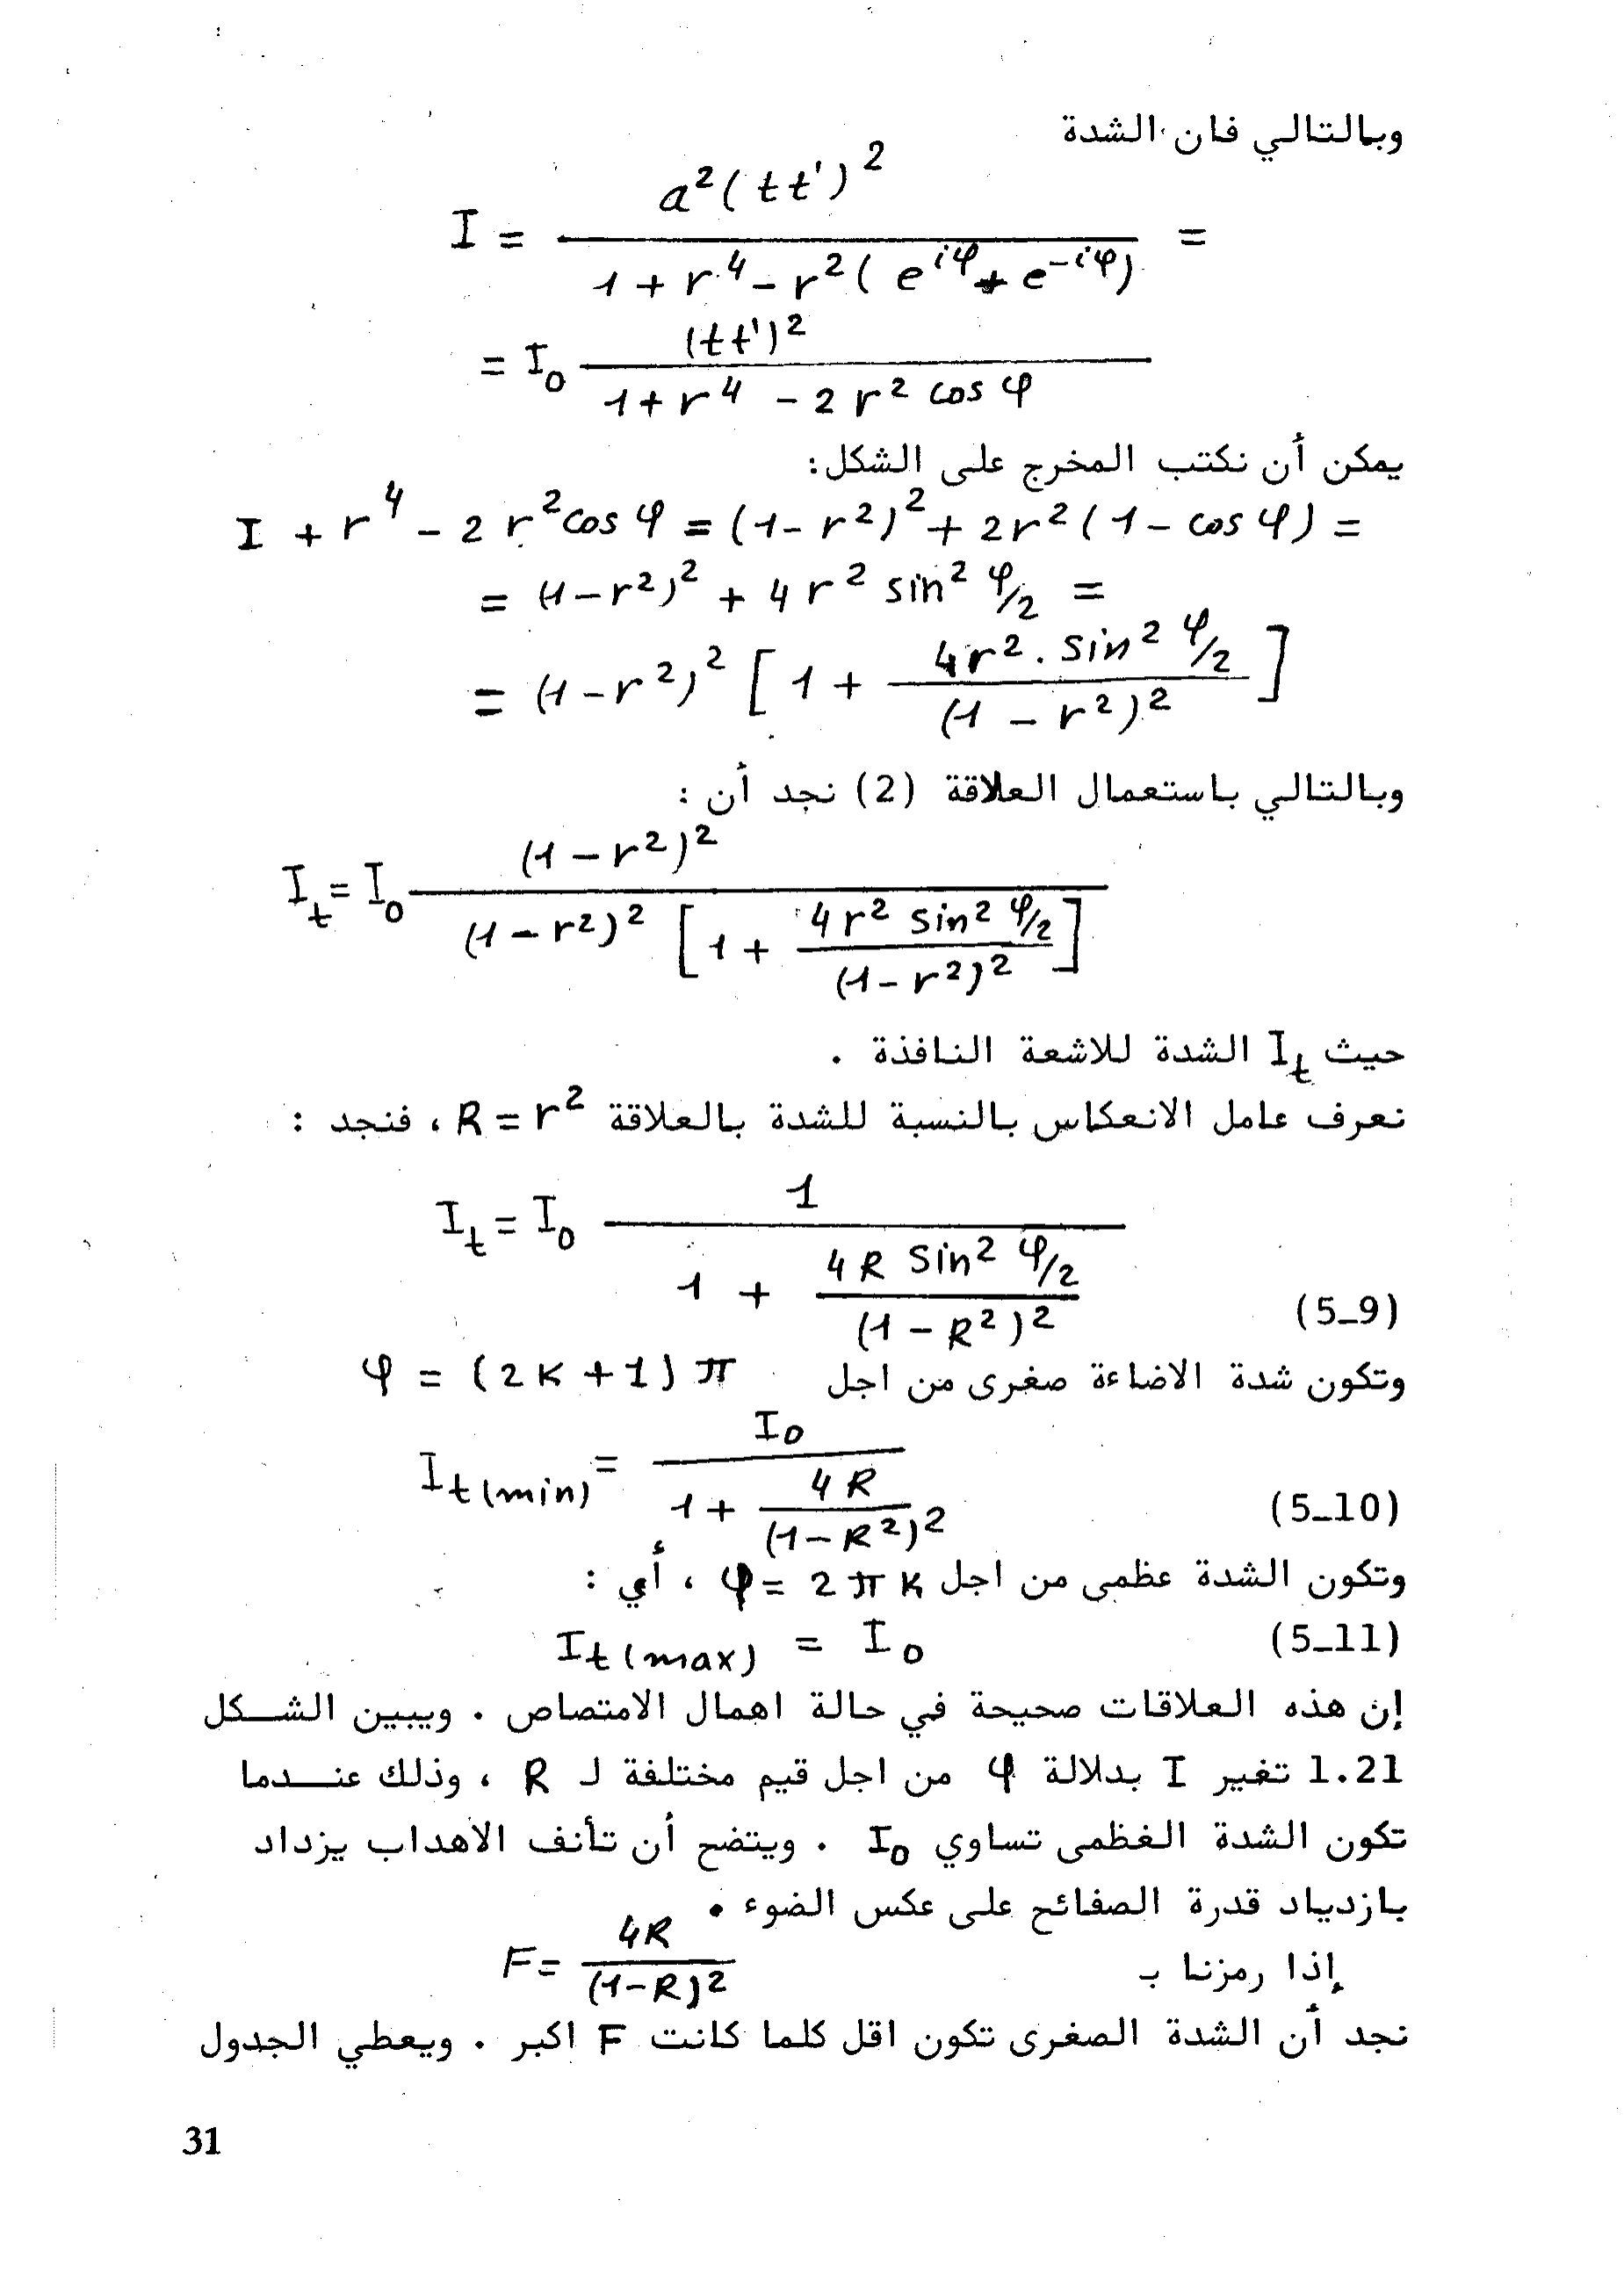 وبالتالي فان الشدة
I = a²(tt')² / (1 + r⁴ – r²(e^{iφ} + e^{-iφ})) =
= I₀ (tt')² / (1 + r⁴ – 2r² cos φ)
يمكن أن نكتب المخرج على الشكل:
I + r⁴ – 2r² cos φ = (1 – r²)² + 2r²(1 – cos φ) =
= (1 – r²)² + 4r² sin² φ/2 =
= (1 – r²)² [1 + (4r². sin² φ/2) / (1 – r²)²]
وبالتالي باستعمال العلاقة (2) نجد أن :
I_t = I₀ (1 – r²)² / ((1 – r²)² [1 + (4r² sin² φ/2) / (1 – r²)²])
حيث I_t الشدة للاشعة النافذة .
نعرف عامل الانعكاس بالنسبة للشدة بالعلاقة R = r² ، فنجد :
I_t = I₀ 1 / (1 + (4R Sin² φ/2) / (1 – R²)²) (5_9)
وتكون شدة الاضاءة صغرى من اجل φ = (2K + 1) π
I_t(min) = I₀ / (1 + 4R / (1 – R²)²) (5_10)
وتكون الشدة عظمى من اجل φ = 2πK ، أي :
I_t(max) = I₀ (5_11)
إن هذه العلاقات صحيحة في حالة اهمال الامتصاص . ويبين الشـكل
1.21 تغير I بدلالة φ من اجل قيم مختلفة لـ R ، وذلك عنـدما
تكون الشدة الغظمى تساوي I₀ . ويتضح أن تأنف الاهداب يزداد
بازدياد قدرة الصفائح على عكس الضوء .
إذا رمزنا بـ F = 4R / (1 – R)²
نجد أن الشدة الصغرى تكون اقل كلما كانت F اكبر . ويعطي الجدول
31